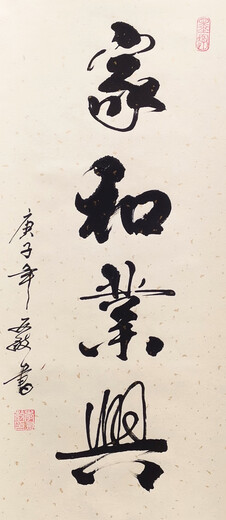 家和業興
庚子年亞敏書